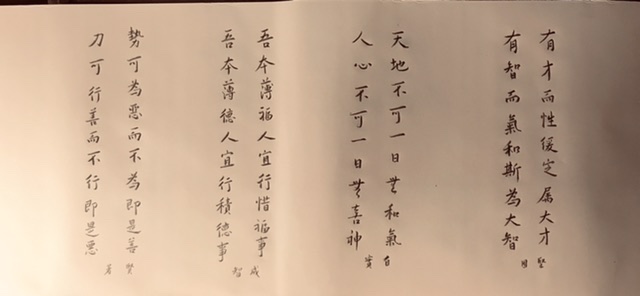 有才而性緩定屬大才
有智而氣和斯為大智
天地不可一日無和氣
人心不可一日無喜神
吾本薄福人宜行惜福事
吾本薄德人宜行積德事
勢可為惡而不為即是善
力可行善而不行即是惡